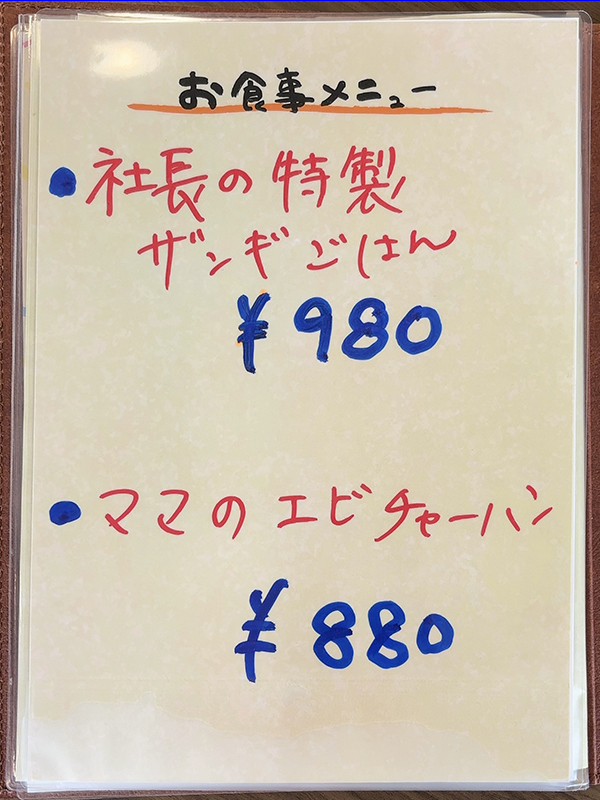 お食事メニュー
●社長の特製
ザンギごはん
¥980
●ママのエビチャーハン
¥880